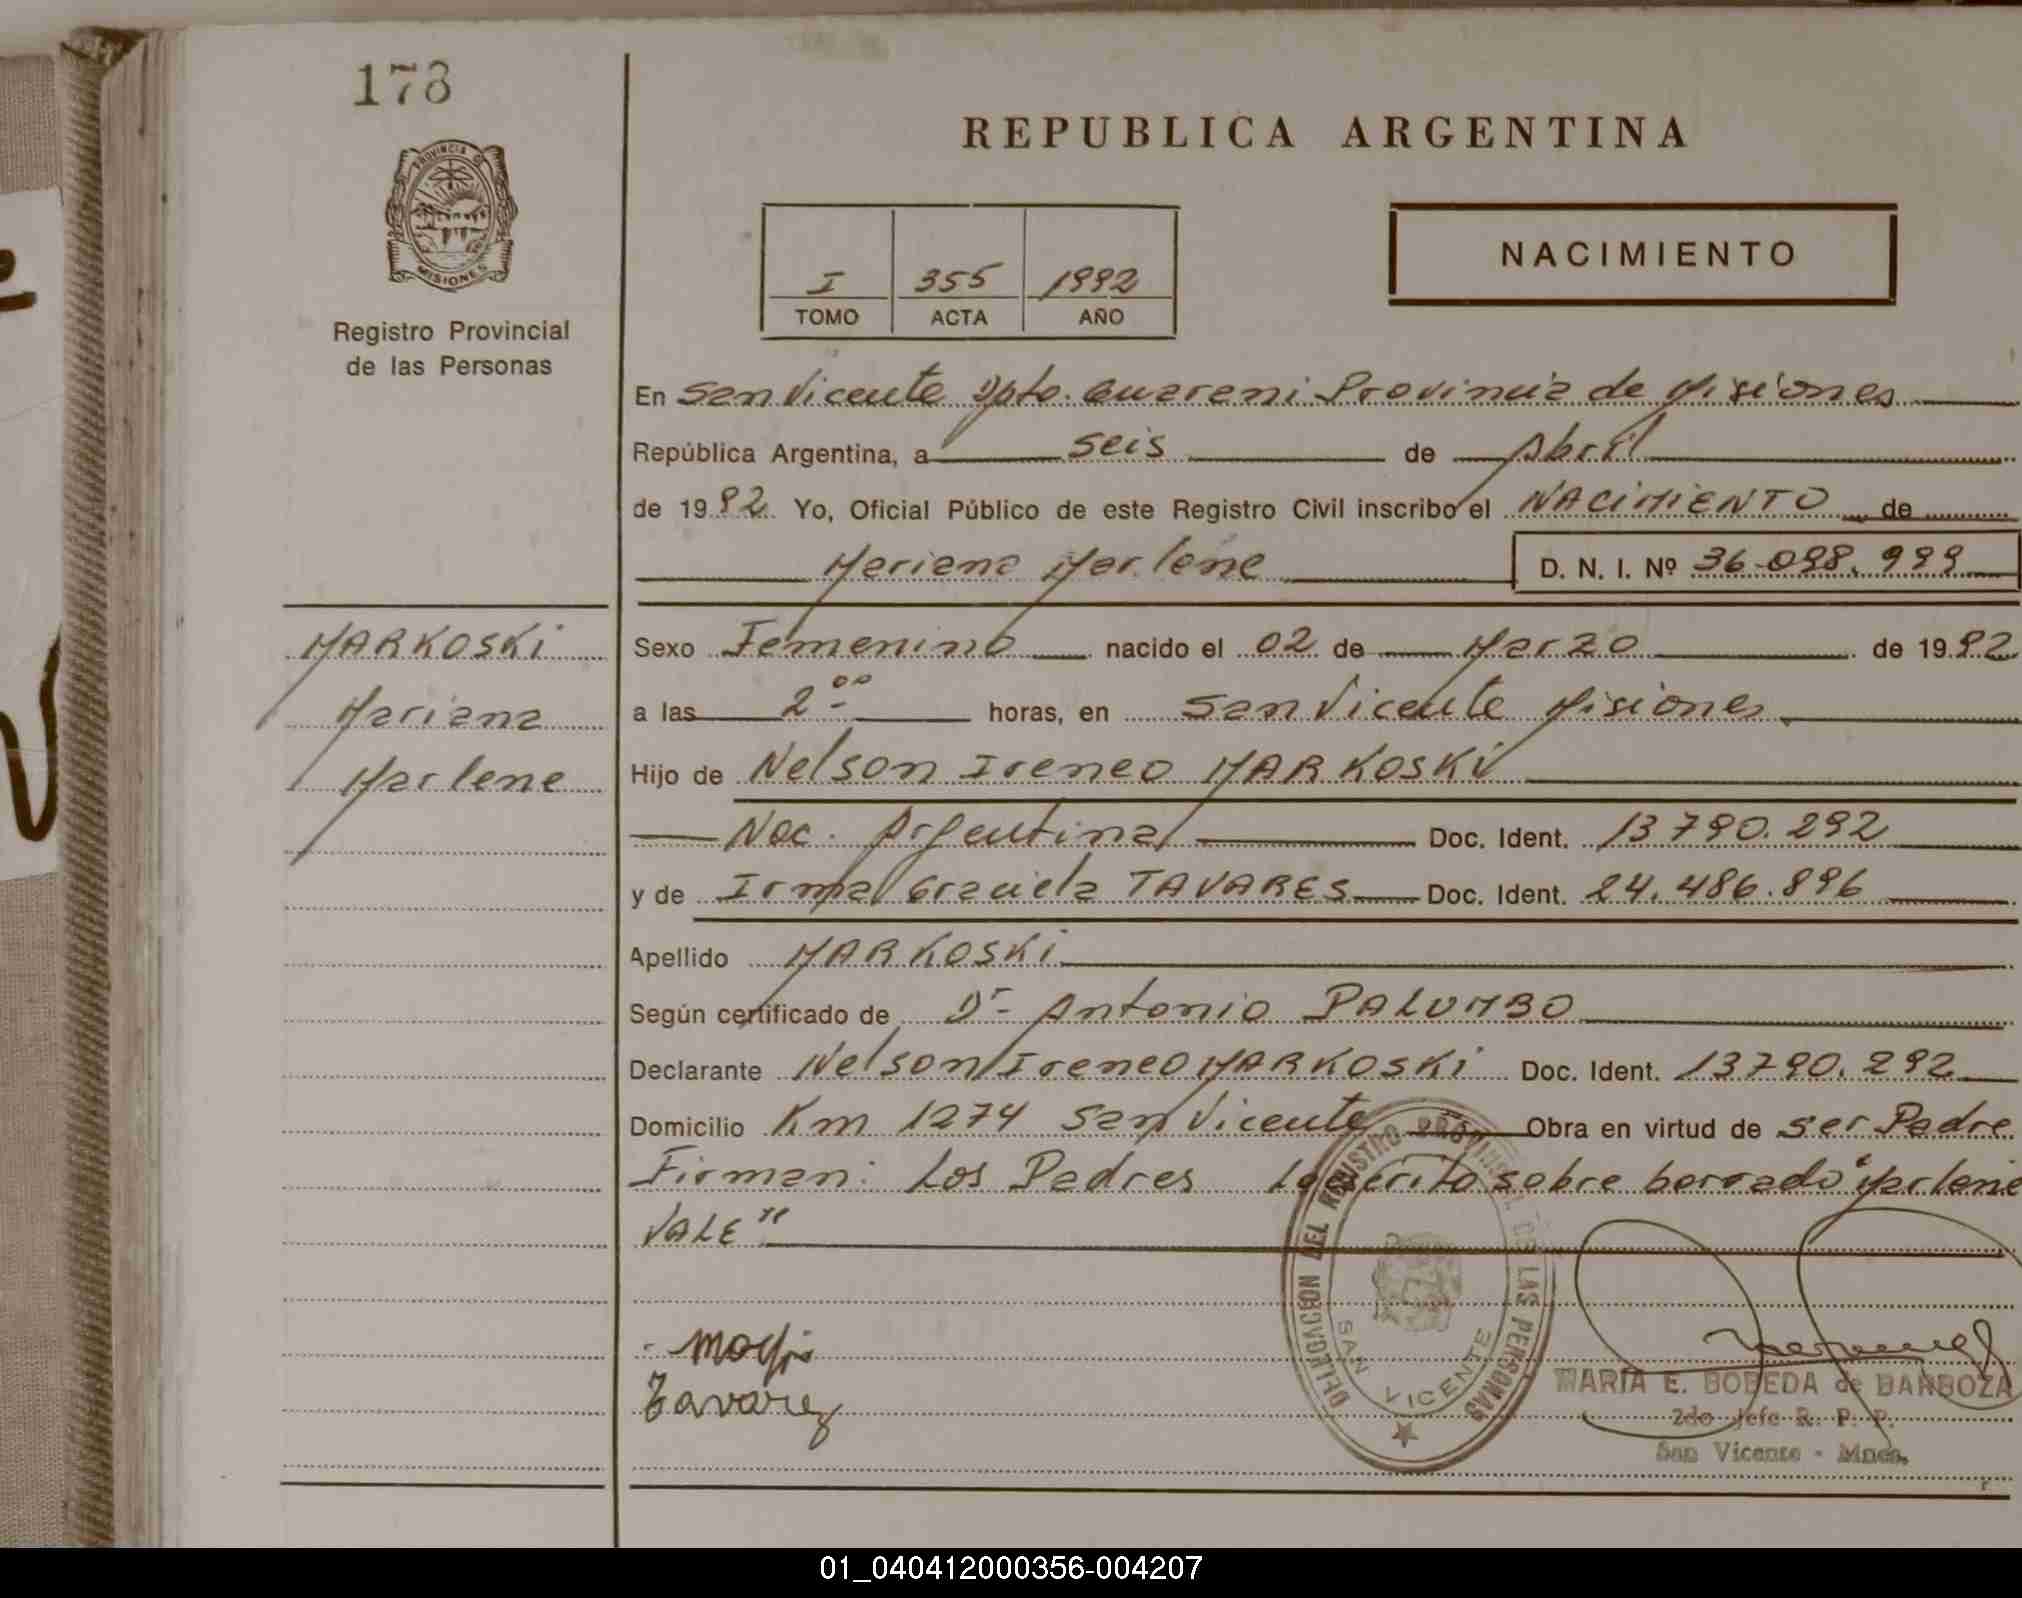 178
PROVINCIA D
MISIONES
Registro Provincial
de las Personas
REPUBLICA ARGENTINA
I 355 1992
TOMO ACTA AÑO
NACIMIENTO
En San Vicente Dpto. Guarani Provincia de Misiones
República Argentina, a seis de Abril
de 1992 Yo, Oficial Público de este Registro Civil inscribo el NACIMIENTO de
Mariana Marlene D. N. I. Nº 36.098.999
MARKOSKI
Mariana
Marlene
Sexo Femenino nacido el 02 de Marzo de 1992
a las 2 00 horas, en San Vicente Misiones
Hijo de Nelson Ireneo MARKOSKI
Nac. Argentina Doc. Ident. 13790.292
y de Irma Graciela TAVARES Doc. Ident. 24.486.896
Apellido MARKOSKI
Según certificado de Dr Antonio PALUMBO
Declarante Nelson Ireneo MARKOSKI Doc. Ident. 13790.292
Domicilio Km 1274 San Vicente Obra en virtud de ser Padre
Firman: Los Padres Lo escrito sobre borrado "Marlene
VALE"
Tavarez
DELEGACION DEL REGISTRO PROVINCIAL DE LAS PERSONAS
SAN VICENTE
MARIA E. BOBEDA de BARBOZA
2do Jefe R. P. P.
San Vicente - Mnes.
01_040412000356-004207